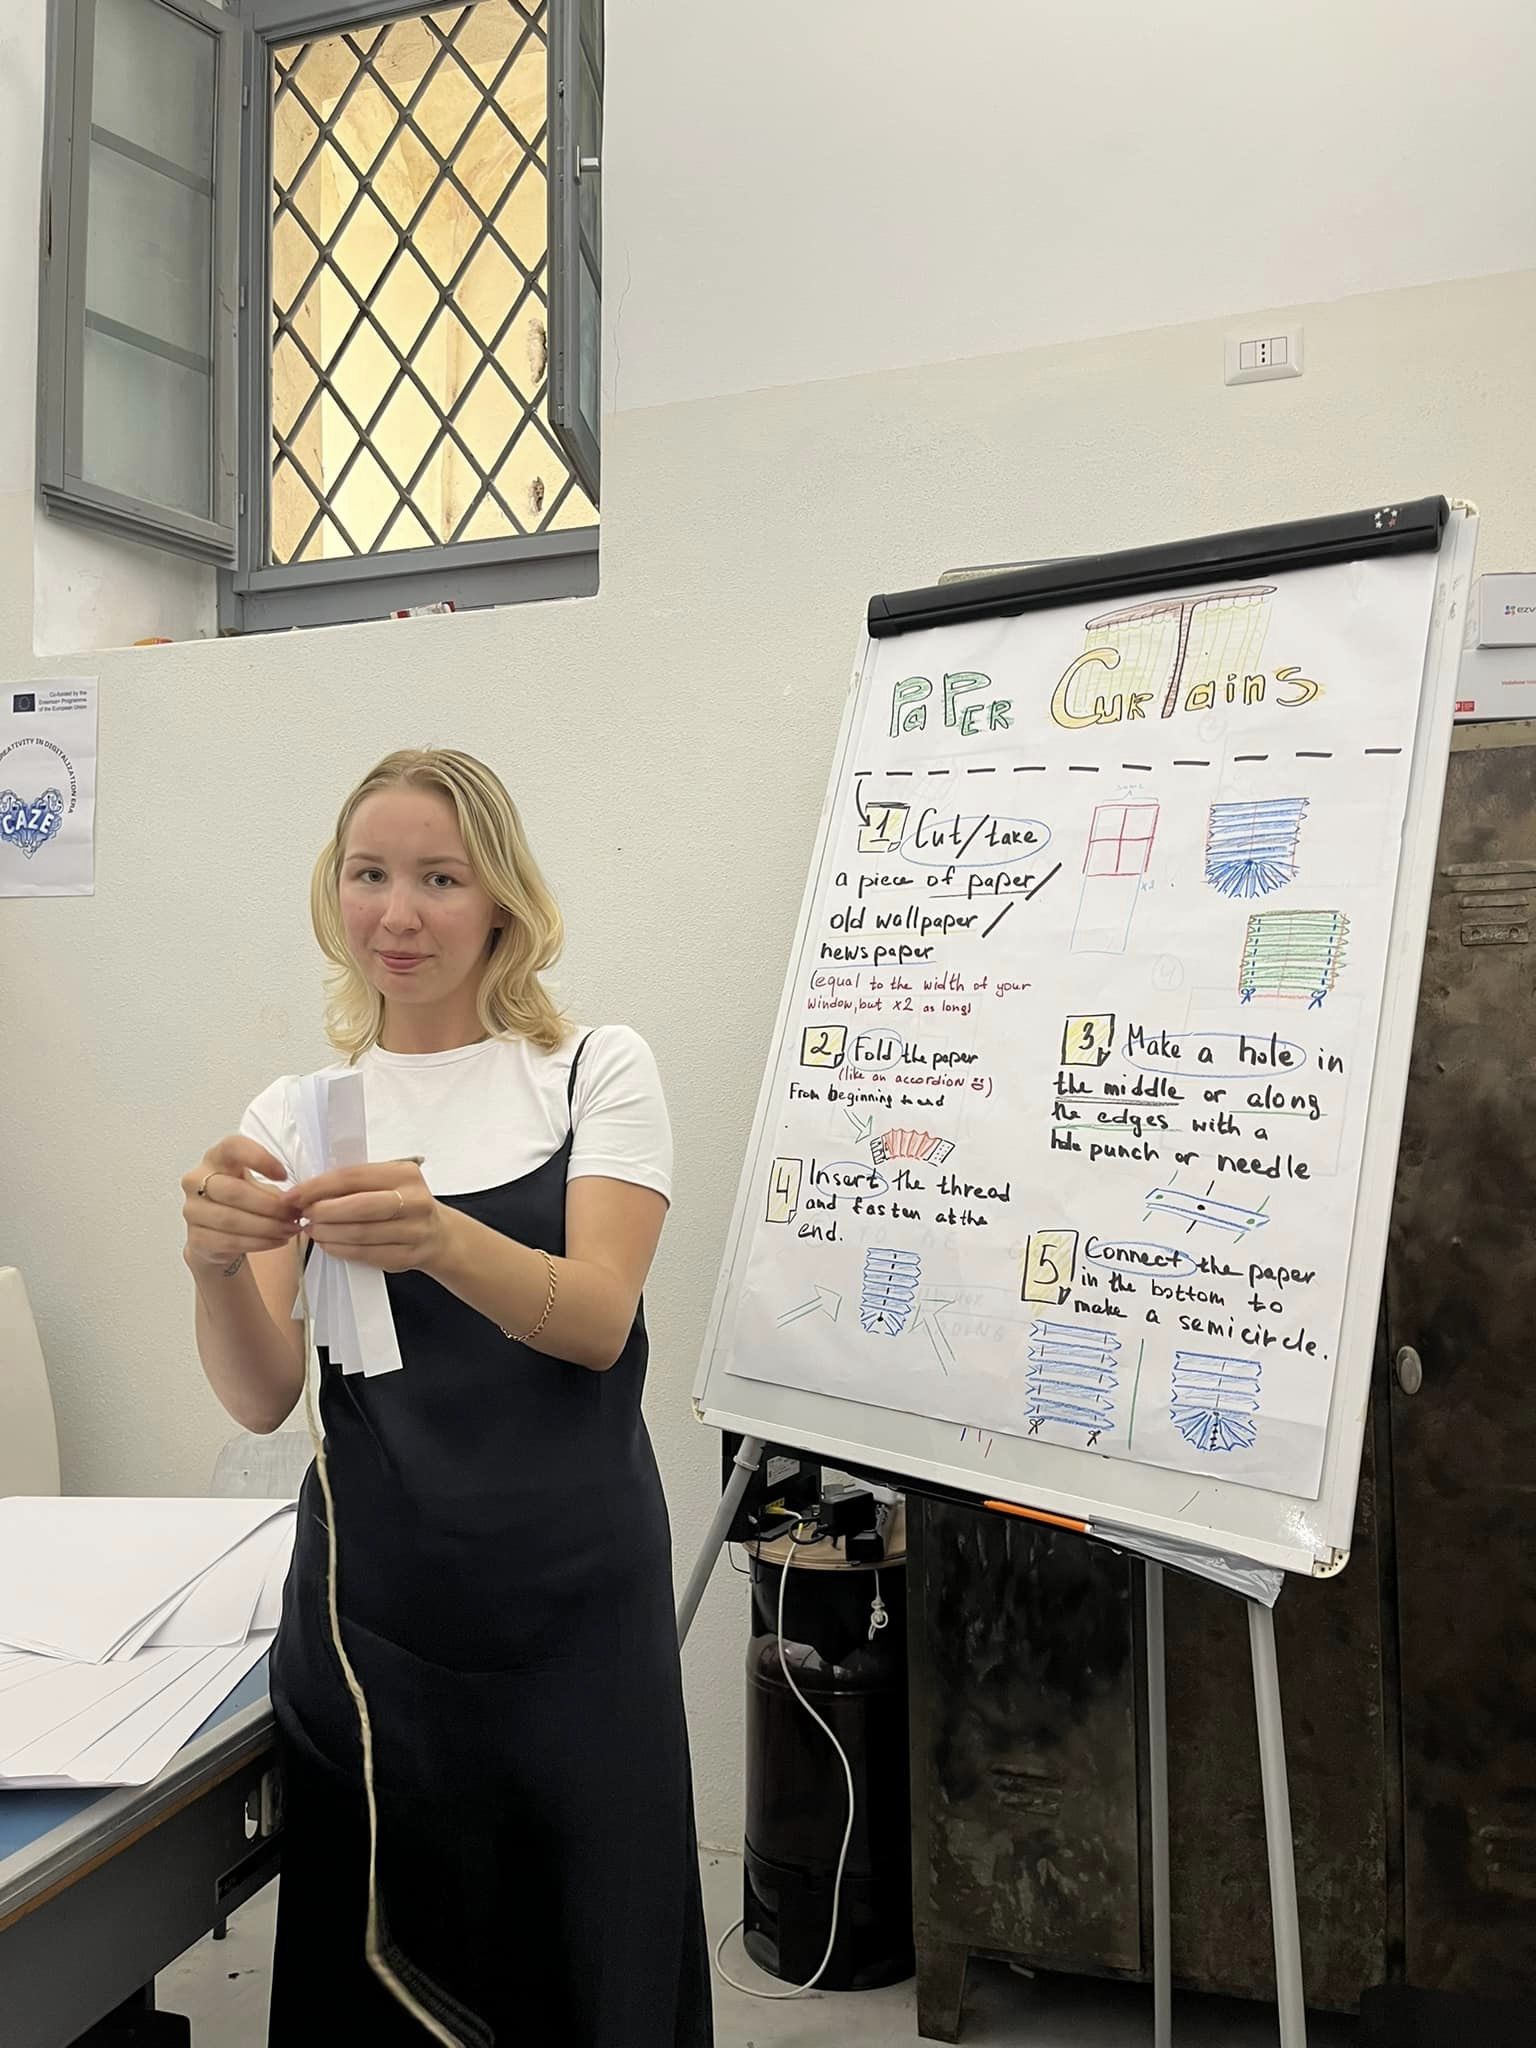 Co-funded by the
Erasmus+ Programme
of the European Union
CREATIVITY IN DIGITALIZATION ERA
CAZE
Vodafone
PaPER CurTains
1 Cut/take
a piece of paper/
old wallpaper/
newspaper
(equal to the width of your
window, but x2 as long)
x2
2 Fold the paper
(like an accordion)
From beginning to end
3 Make a hole in
the middle or along
the edges with a
hole punch or needle
4 Insert the thread
and fasten at the
end.
5 Connect the paper
in the bottom to
make a semicircle.